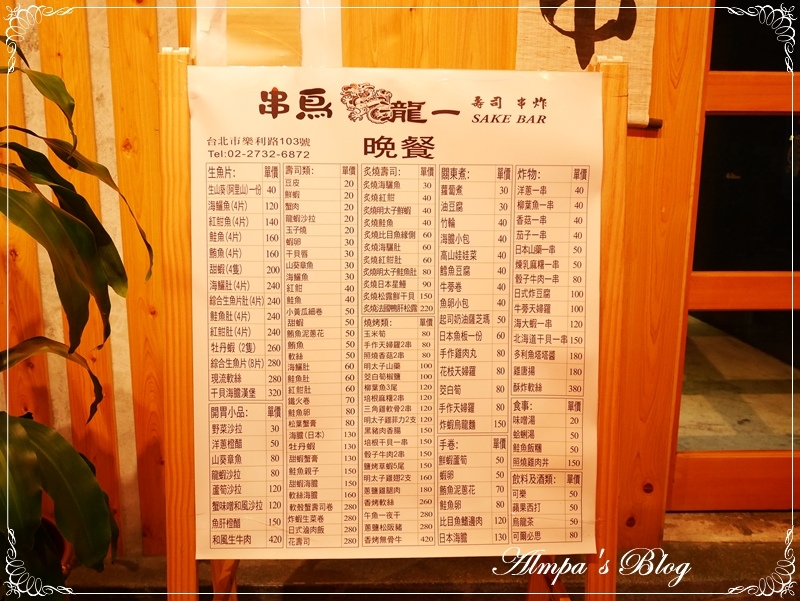 串鳥 龍一
壽司 串炸
SAKE BAR
台北市樂利路103號
Tel:02-2732-6872
晚餐
生魚片: 單價
生山葵(阿里山)一份 40
海鱺魚(4片) 120
紅魽魚(4片) 140
鮭魚(4片) 160
鮪魚(4片) 160
甜蝦(4隻) 200
海鱺肚(4片) 240
綜合生魚片肚(4片) 240
鮭魚肚(4片) 240
紅魽肚(4片) 240
牡丹蝦 (2隻) 260
綜合生魚片(8片) 280
現流軟絲 280
干貝海膽漢堡 320
開胃小品: 單價
野菜沙拉 30
洋蔥橙醋 50
山葵章魚 80
龍蝦沙拉 80
蘆筍沙拉 120
蟹味噌和風沙拉 120
魚肝橙醋 150
和風生牛肉 420
壽司類: 單價
豆皮 20
鮮蝦 20
蟹肉 20
龍蝦沙拉 20
玉子燒 20
蝦卵 30
干貝唇 30
山葵章魚 30
海鱺魚 30
紅魽 40
鮭魚 40
小黃瓜細卷 50
甜蝦 50
鮪魚泥蔥花 50
鮪魚 50
軟絲 50
海鱺肚 60
鮭魚肚 60
紅魽肚 60
鐵火卷 70
鮭魚卵 80
松葉蟹膏 80
海膽(日本) 130
牡丹蝦 130
甜蝦蟹膏 130
鮭魚親子 150
甜蝦海膽 150
軟絲海膽 160
軟殼蟹壽司卷 280
炸蝦生菜卷 280
日式滷肉飯 280
花壽司 280
炙燒壽司: 單價
炙燒海鱺魚 30
炙燒紅魽 40
炙燒明太子鮮蝦 40
炙燒鮭魚 40
炙燒比目魚緣側 60
炙燒海鱺肚 60
炙燒紅魽肚 60
炙燒明太子鮭魚肚 80
炙燒日本星鰻 90
炙燒松露鮮干貝 150
炙燒法國鴨肝松露 220
燒烤類: 單價
玉米筍 80
手作天婦羅2串 80
照燒香菇2串 80
明太子山藥 100
茭白筍椒鹽 100
柳葉魚3尾 120
培根麻糬2串 120
三角雞軟骨2串 120
明太子雞菲力2支 120
黑豬肉香腸 150
培根干貝一串 150
骰子牛肉2串 150
鹽烤草蝦5尾 150
明太子雞翅2支 160
蔥鹽雞腿肉 180
香烤軟絲 260
午魚一夜干 280
蔥鹽松阪豬 280
香烤無骨牛 420
關東煮: 單價
蘿蔔煮 30
油豆腐 30
竹輪 40
海膽小包 40
高山娃娃菜 40
鱈魚豆腐 40
牛蒡卷 40
魚卵小包 40
起司奶油薩芝瑪 50
日本魚板一份 60
手作雞肉丸 80
花枝天婦羅 80
茭白筍 80
手作天婦羅 80
炸蝦烏龍麵 150
手卷: 單價
鮮蝦蘆筍 50
蝦卵 50
鮪魚泥蔥花 70
鮭魚卵 80
比目魚鰭邊肉 120
日本海膽 130
炸物: 單價
洋蔥一串 40
柳葉魚一串 40
香菇一串 40
茄子一串 40
日本山藥一串 50
煉乳麻糬一串 50
骰子牛肉一串 80
日式炸豆腐 100
牛蒡天婦羅 100
海大蝦一串 120
北海道干貝一串 150
多利魚塔塔醬 180
雞唐揚 180
酥炸軟絲 380
食事: 單價
味噌湯 20
蛤蜊湯 50
鮭魚飯糰 50
照燒雞肉丼 150
飲料及酒類: 單價
可樂 50
蘋果西打 50
烏龍茶 50
可爾必思 80
Almpa 's Blog